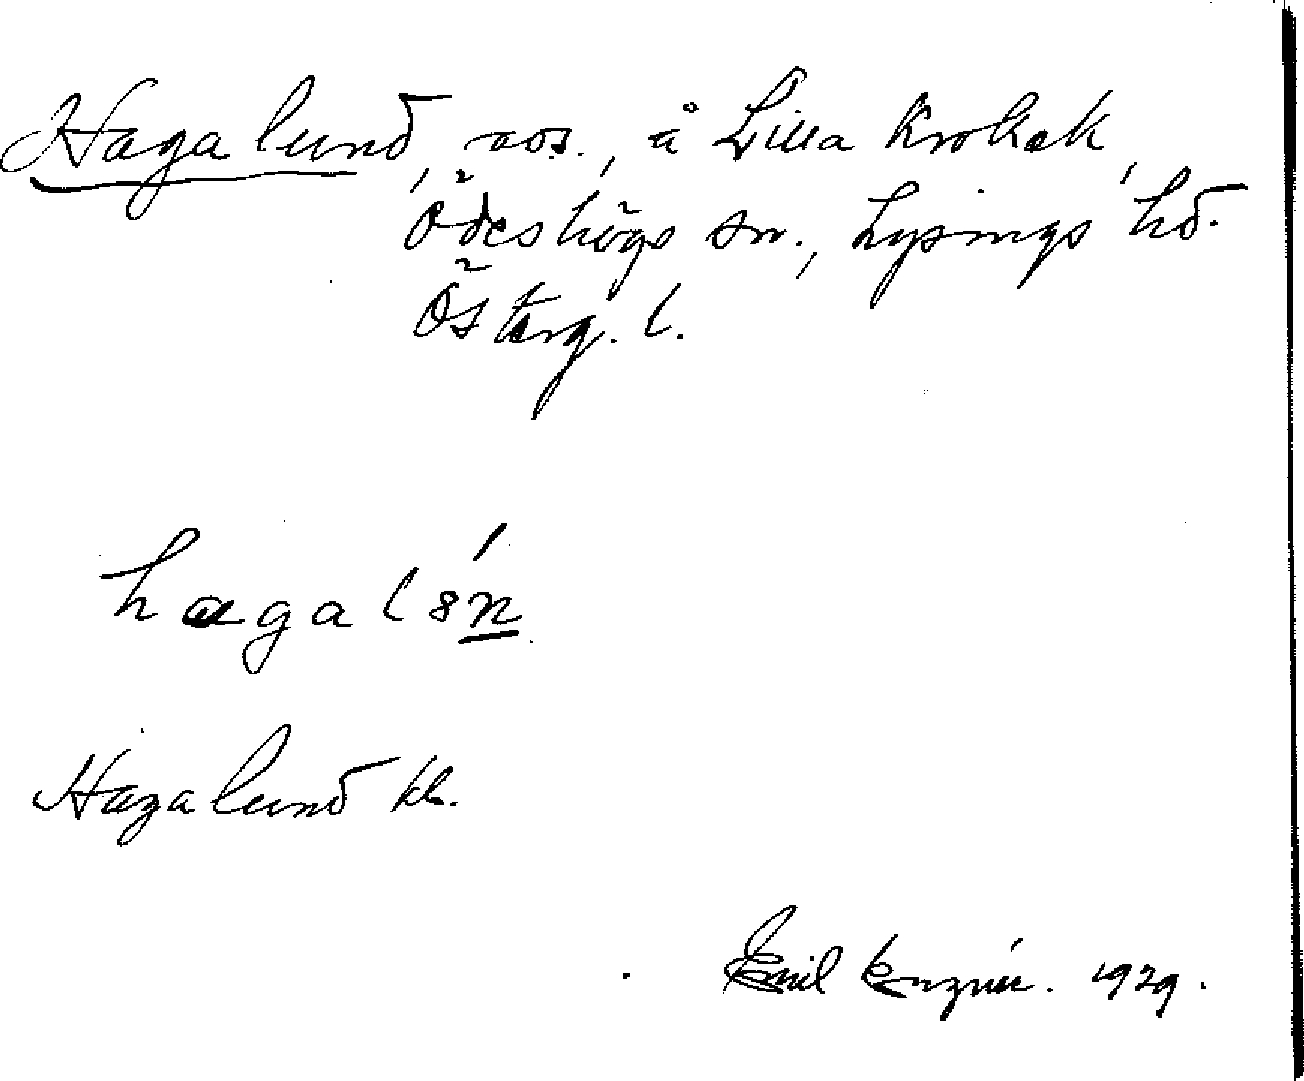 Hagalund, aos., å Lilla Krokek,
Ödeshögs sn., Lysings hd.
Österg. l.
hagal8ń
Hagalund kb.
Emil 1929.